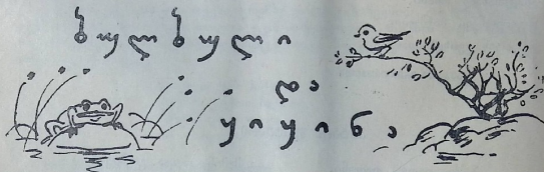 ბულბული
და
ყიყინა